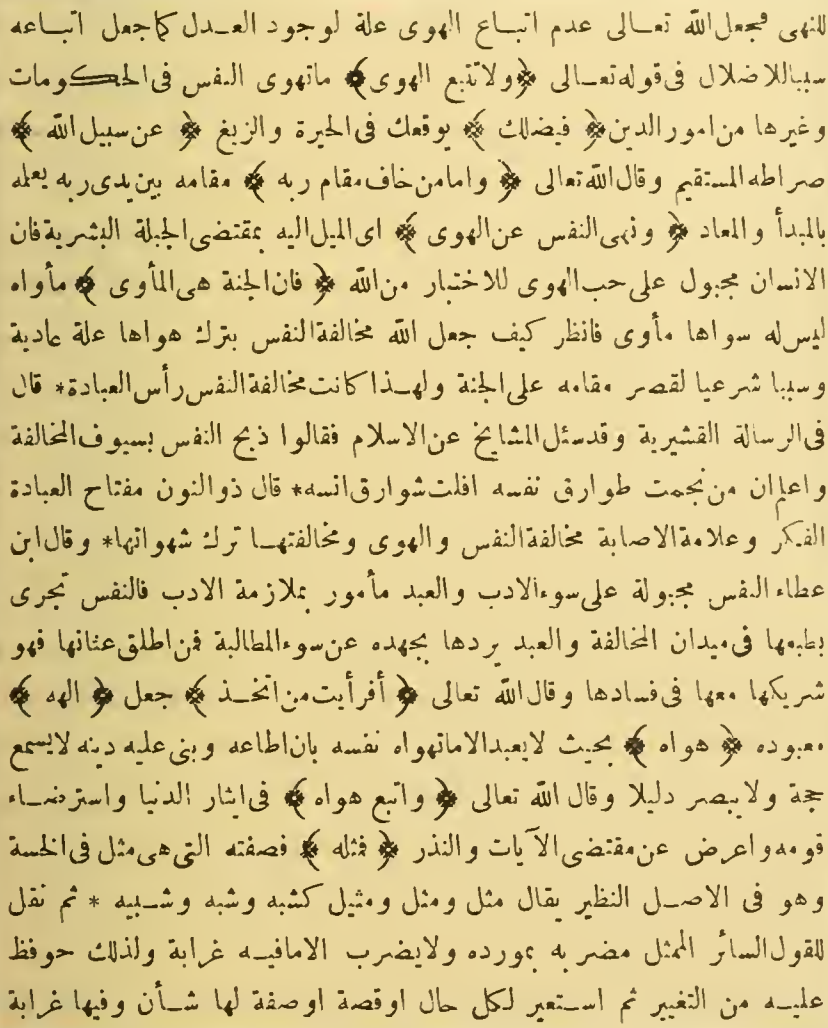 للنهى فجعل الله تعالى عدم اتباع الهوى علة لوجود العدل كما جعل اتباعه
سببا للاضلال فى قوله تعالى ﴿ولا تتبع الهوى﴾ ماتهوى النفس فى الحكومات
وغيرها من امور الدين ﴿ فيضلك ﴾ يوقعك فى الحيرة والزيغ ﴿ عن سبيل الله ﴾
صراطه المستقيم وقال الله تعالى ﴿ وامامن خاف مقام ربه ﴾ مقامه بين يدى ربه يعلمه
بالمبدأ والمعاد ﴿ ونهى النفس عن الهوى ﴾ اى الميل اليه بمقتضى الجبلة البشرية فان
الانسان مجبول على حب الهوى للاختبار من الله ﴿ فان الجنة هى المأوى ﴾ مأواه
ليس له سواها مأوى فانظر كيف جعل الله مخالفة النفس بترك هواها علة عادية
وسببا شرعيا لقصر مقامه على الجنة ولهذا كانت مخالفة النفس رأس العبادة* قال
فى الرسالة القشيرية وقدسئل المشايخ عن الاسلام فقالوا ذبح النفس بسيوف المخالفة
واعلم ان من نجمت طوارق نفسه افلت شوارق انسه* قال ذوالنون مفتاح العبادة
الفكر وعلامة الاصابة مخالفة النفس والهوى ومخالفتها ترك شهواتها* وقال ابن
عطاء النفس مجبولة على سوء الادب والعبد مأمور بملازمة الادب فالنفس تجرى
بطبعها فى ميدان المخالفة والعبد يردها بجهده عن سوء المطالبة فمن اطلق عنانها فهو
شريكها معها فى فسادها وقال الله تعالى ﴿ أفرأيت من اتخذ ﴾ جعل ﴿ الهه ﴾
معبوده ﴿ هواه ﴾ بحيث لايعبد الاماتهواه نفسه بان اطاعه وبنى عليه دينه لايسمع
حجة ولايبصر دليلا وقال الله تعالى ﴿ واتبع هواه ﴾ فى ايثار الدنيا واسترضاء
قومه واعرض عن مقتضى الآيات والنذر ﴿ فمثله ﴾ فصفته التى هى مثل فى الخسة
وهو فى الاصل النظير يقال مثل ومثل ومثيل كشبه وشبه وشبيه * ثم نقل
للقول السائر الممثل مضربه بمورده ولايضرب الامافيه غرابة ولذلك حوفظ
عليه من التغيير ثم استعير لكل حال اوقصة اوصفة لها شأن وفيها غرابة